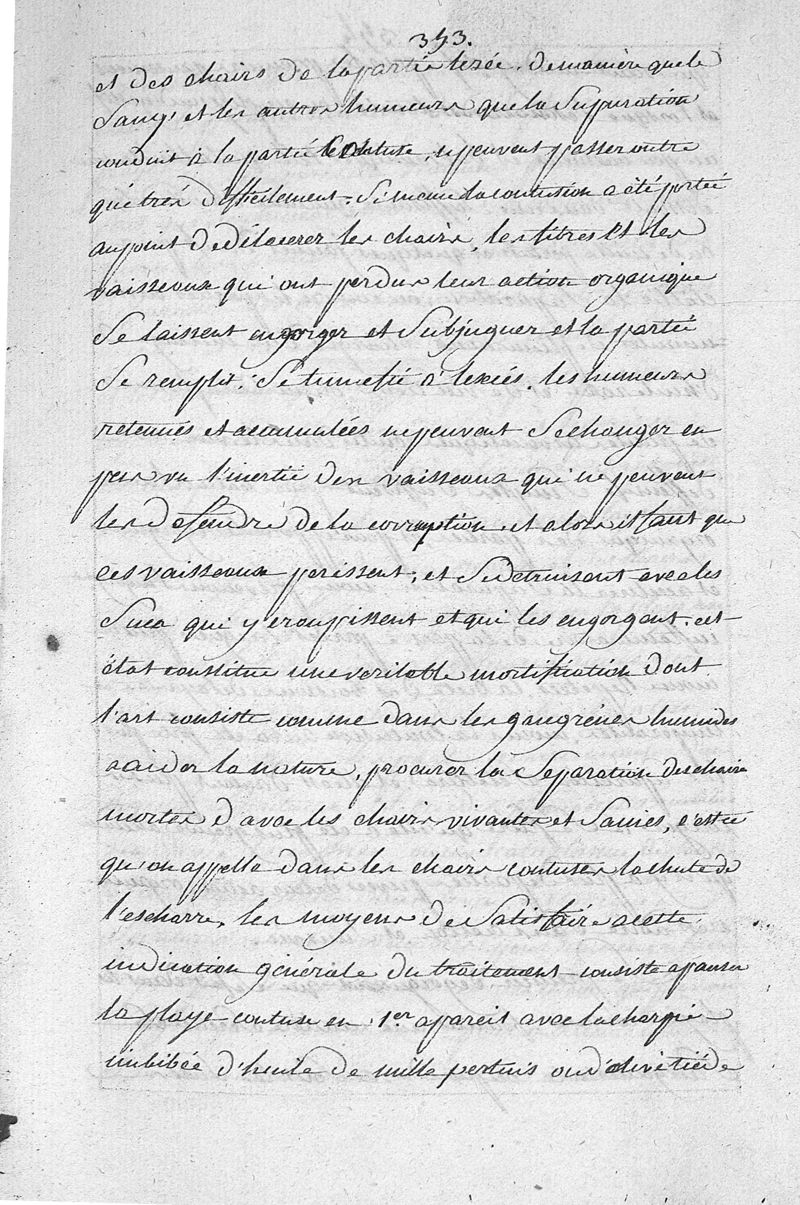 353.
et des chairs de la partie lezée. de maniere que le
Sang, et les autres humeurs que la Supuration
conduit à la partie Contuse, n peuvent passer outre
que très difficilement. Si meme la contusion a été portée
au point de délacerer les chairs, les fibres et les
vaisseaux qui ont perdus leur action organique
Se laissent engorger et Subjuguer et la partie
Se remplit. Se tumefie à lexcés. les humeurs
retenues et accumulées ne peuvent Sechanger en
pus vu l'inertie des vaisseaux qui ne peuvent
les deffendre de la corruption et alors il faut que
ces vaisseaux perissent, et Se detruisent avec les
Sucs qui y croupissent et qui les engorgent. cet
état constitue une veritable mortification dont
l'art consiste comme dans les gangrénes humides
a aider la nature, procurer la Separation des chairs
mortes d'avec les chairs vivantes et Saines, c'est ce
qu'on appelle dans les chairs contuses la chute de
l'escharre. les moyens de Satisfaire a cette
indication générale du traitement consiste a panser
la playe contuse en 1er apareil avec la charpie
imbibée d'huile de mille pertuis ou d'olive tiéde